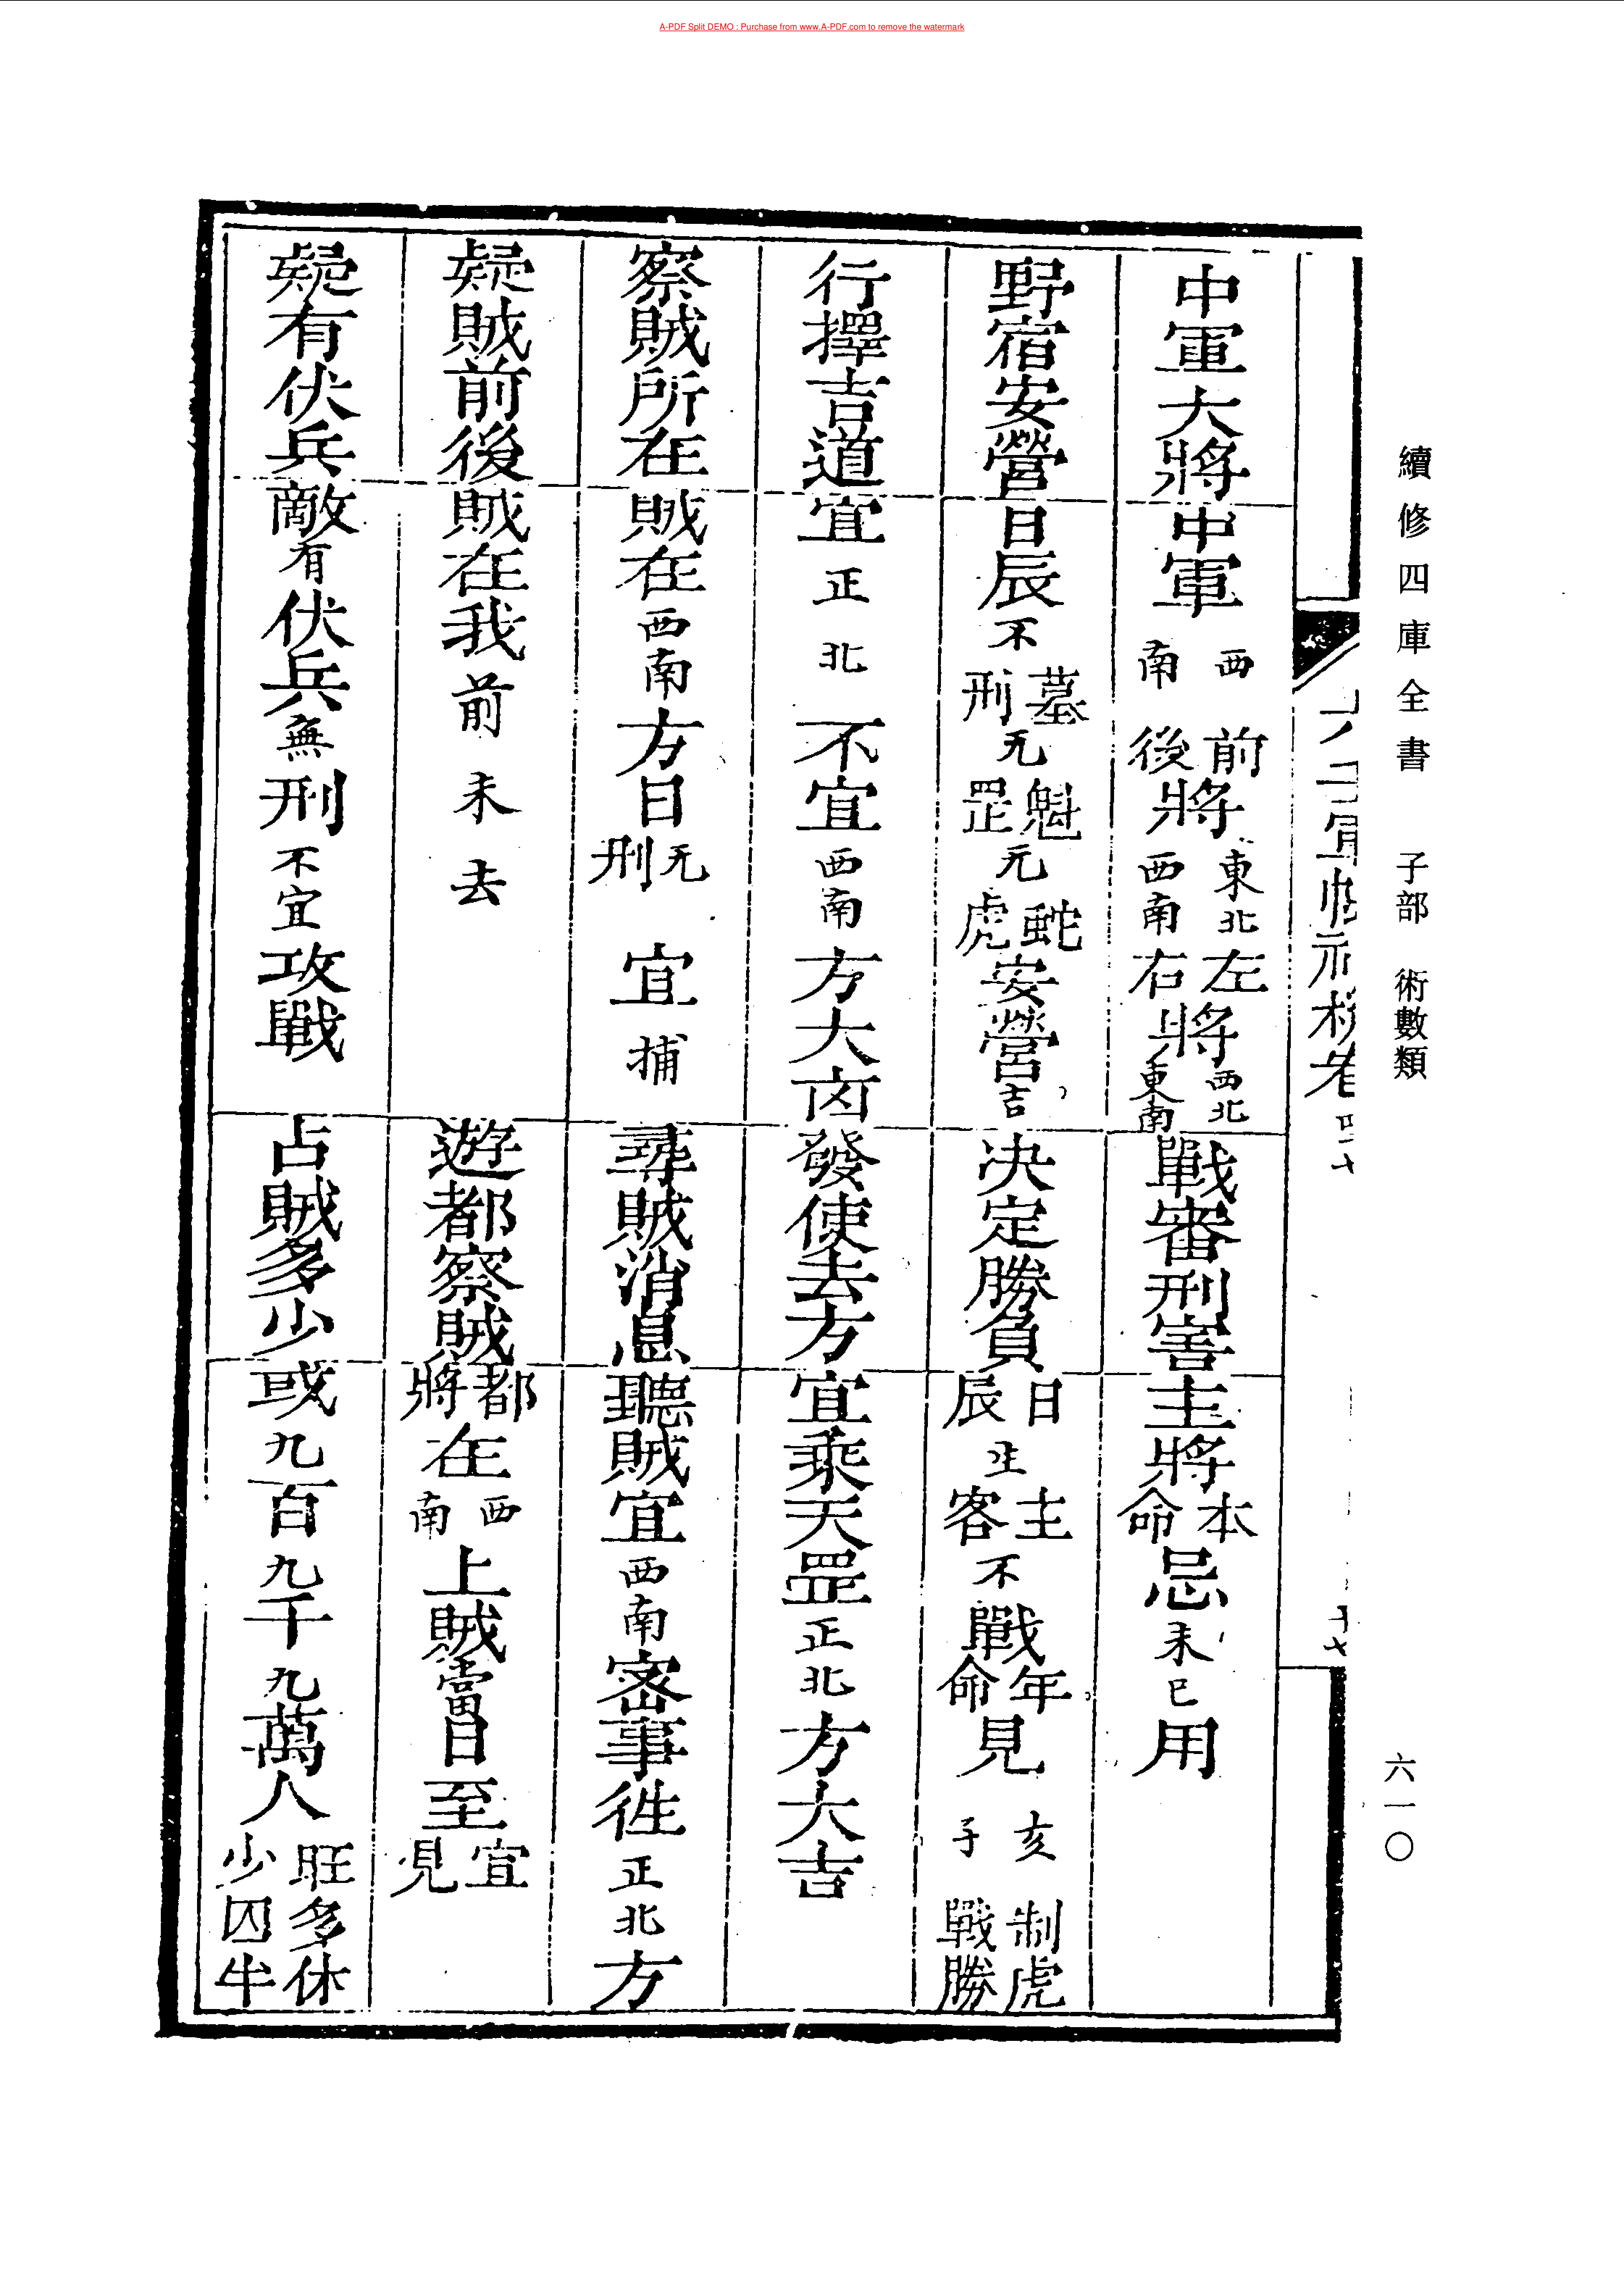 A-PDF Split DEMO : Purchase from www.A-PDF.com to remove the watermark
續修四庫全書 子部 術數類
六一〇
中軍大將 中軍 西南 前後將 東北西南 左右將 西北東南 戰審刑害 主將 本命 忌 未巳 用
野宿安營 日辰 不 墓刑 无 魁罡 元 蛇虎 安營 吉 決定勝負 日辰 生 主客 不 戰 年命 見 亥子 制虎戰勝
行擇吉道 宜 正北 不宜 西南 方大凶 發使去方 宜乘天罡 正北 方大吉
察賊所在 賊在 西南 方日 无刑 宜 捕 尋賊消息 聽賊宜 西南 密事往 正北 方
疑賊前後 賊在我 前 未去 遊都察賊 都將 在 西南 上賊 當 日至 宜見
疑有伏兵 敵 有 伏兵 無 刑 不宜 攻戰 占賊多少 或 九 百 九 千 九 萬人 旺多休少囚半